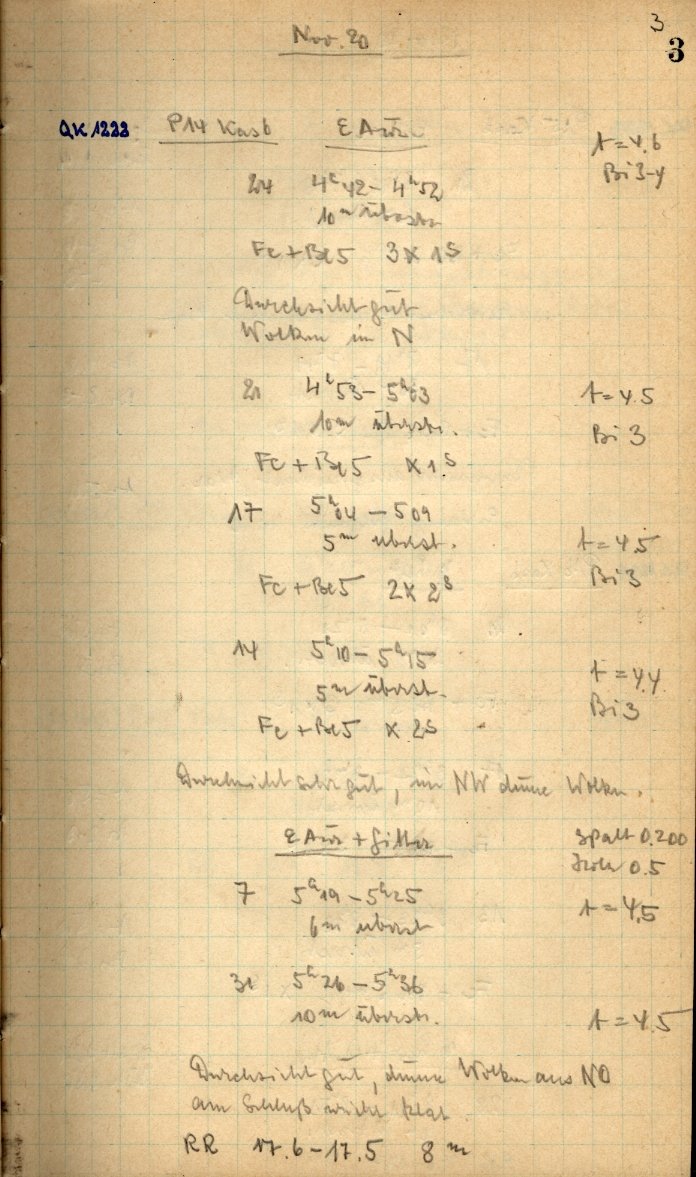 3
3
Nov. 20
QK 1222 P14 Kas6 ε Aur
t = 4.6
Bi 3-4
24 4ʰ42 – 4ʰ52
10ᵐ überstr.
Fe + Be5 3 x 1ˢ
Durchsicht gut
Wolken im N
21 4ʰ53 – 5ʰ03 t = 4.5
10ᵐ überstr. Bi 3
Fe + Be5 x 1ˢ
17 5ʰ04 – 509
5ᵐ überst. t = 4.5
Fe + Be5 2 x 2ˢ Bi 3
14 5ʰ10 – 5ʰ15 t = 4.4
5ᵐ überst. Bi 3
Fe + Be5 x 2ˢ
Durchsicht sehr gut, im NW dünne Wolken.
ε Aur + Gitter Spalt 0.200
0.5
7 5ʰ19 – 5ʰ25 t = 4.5
6ᵐ überst
31 5ʰ26 – 5ʰ36
10ᵐ überstr. t = 4.5
Durchsicht gut, dünne Wolken aus NO
am Schluß nicht klar
RR 17.6 – 17.5 8ᵐ